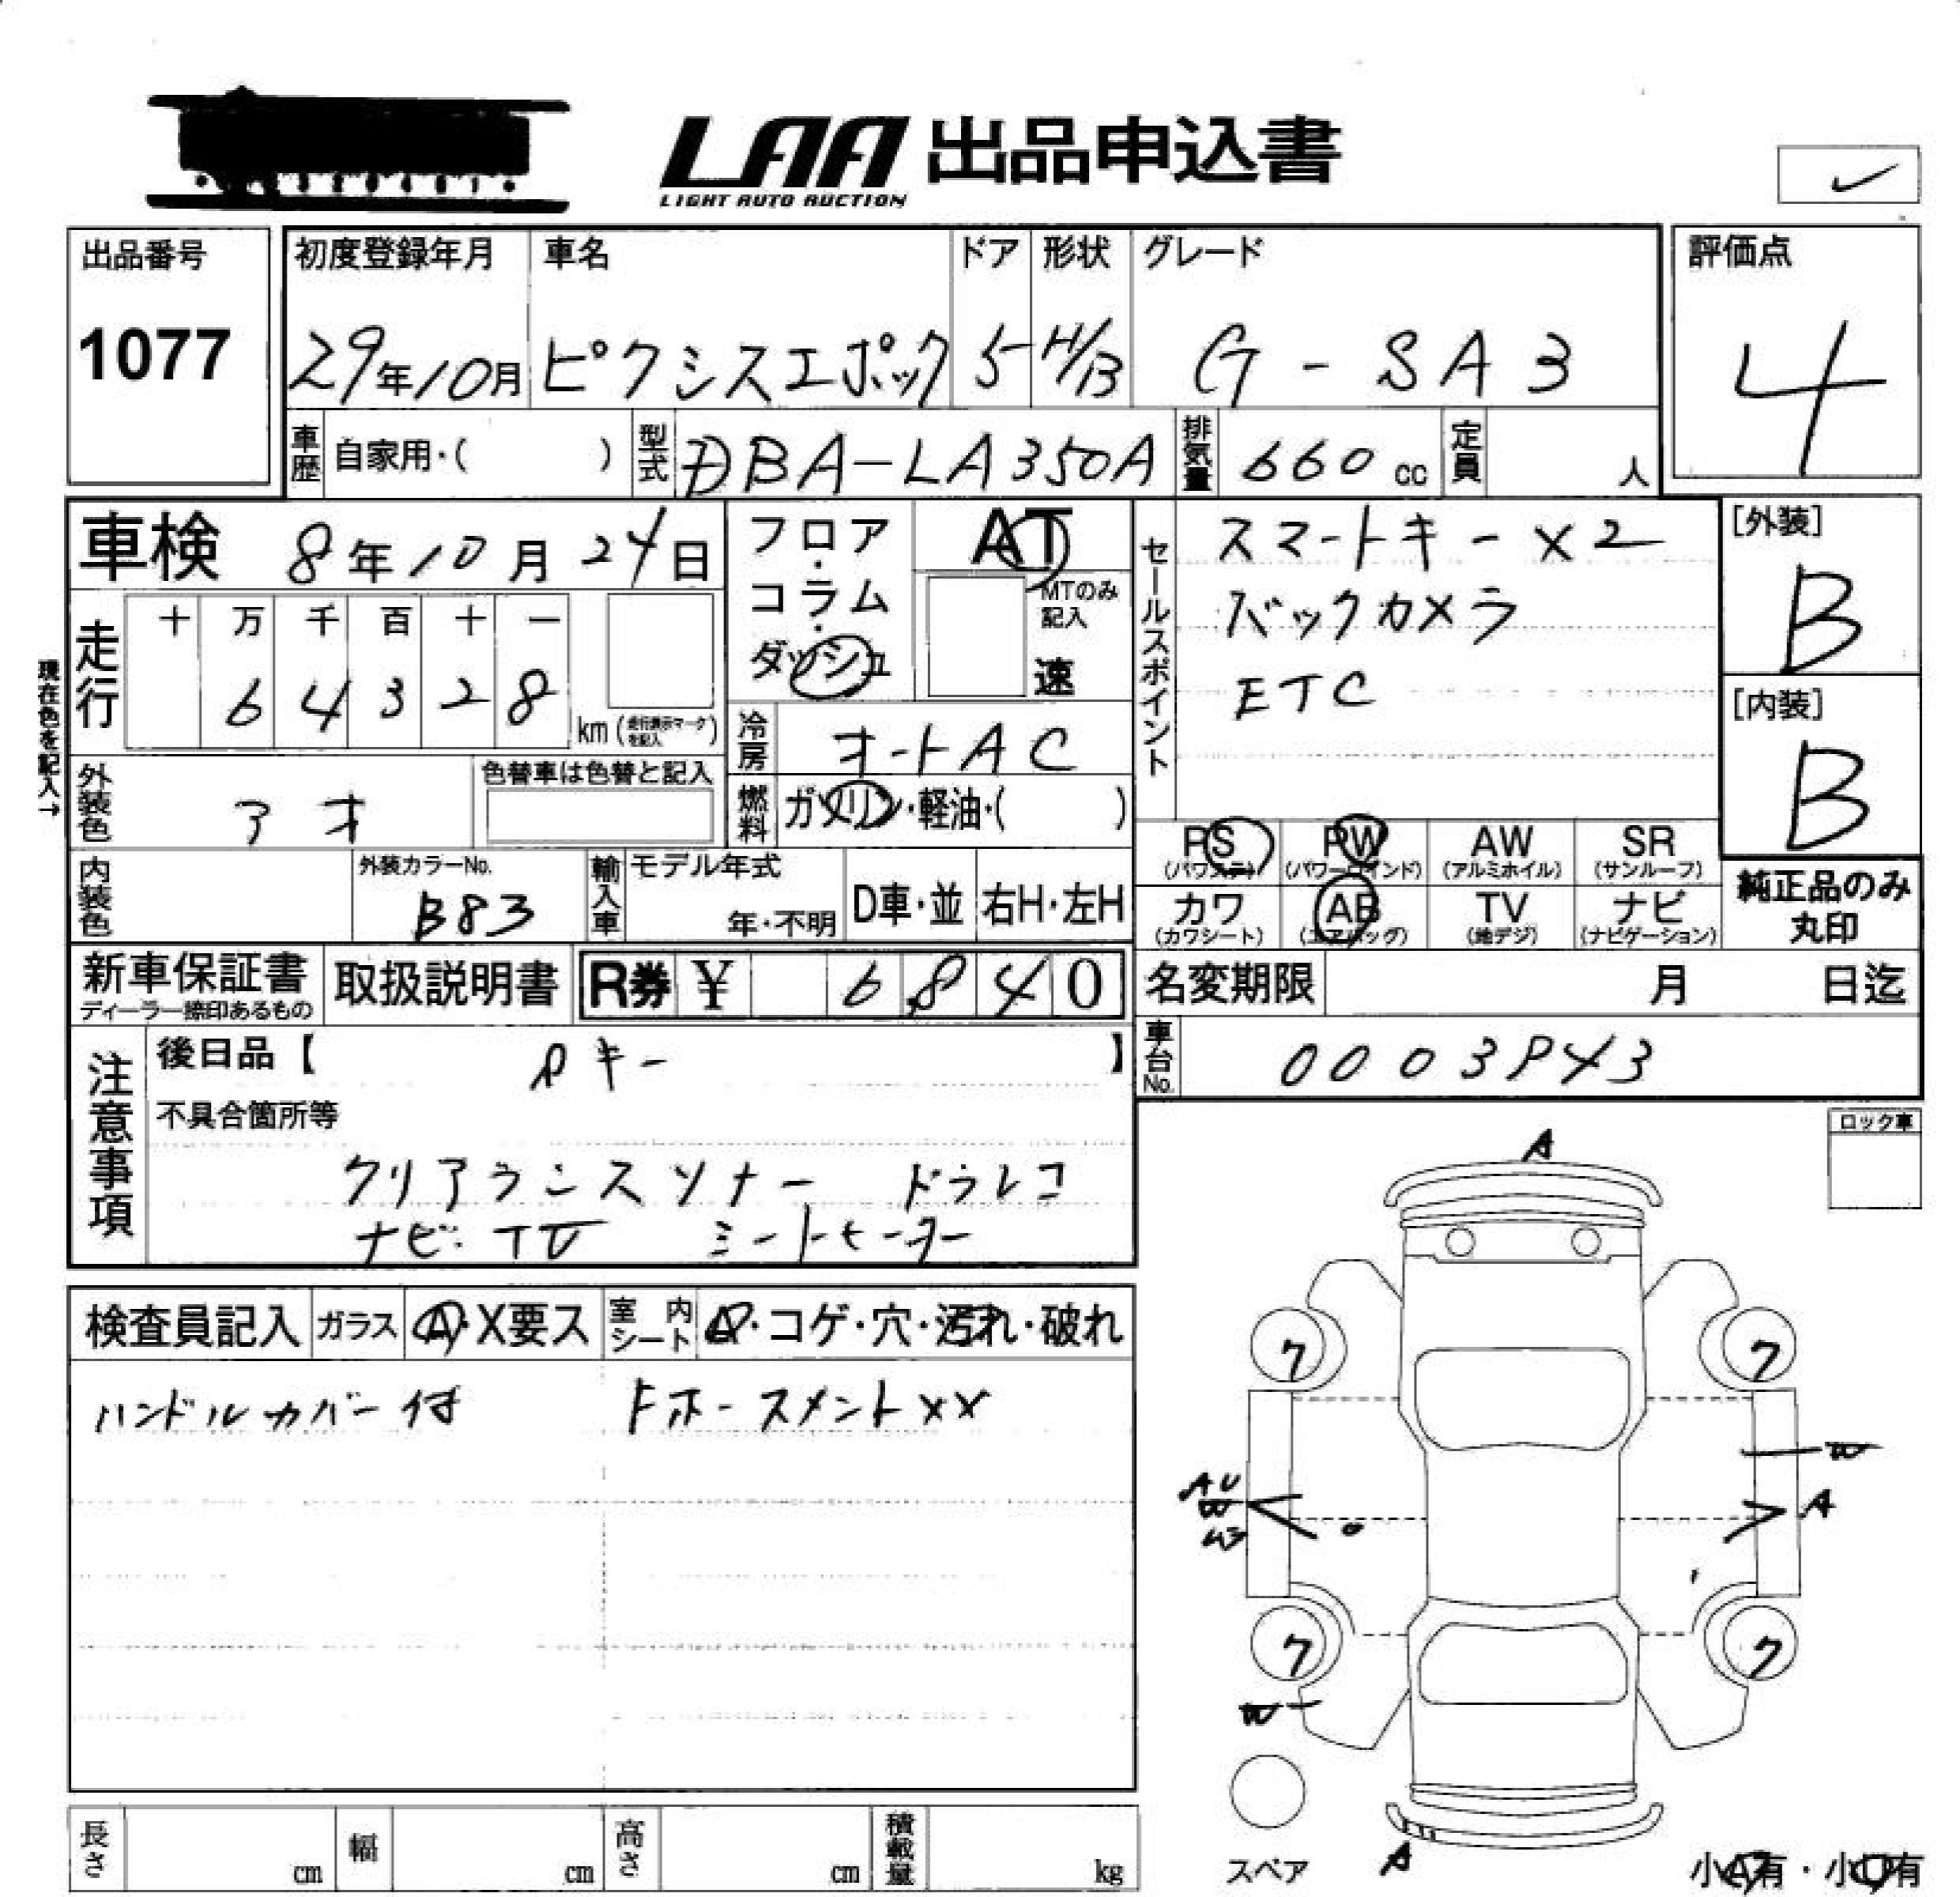 LAA 出品申込書
LIGHT AUTO AUCTION
出品番号
1077
初度登録年月 車名 ドア 形状 グレード
29年10月 ピクシスエポック 5 H/B G-SA3
評価点
4
車歴 自家用・( ) 型式 DBA-LA350A 排気量 660 cc 定員 人
車検 8年10月24日
フロア・コラム・ダッシュ
AT
MTのみ記入
速
セールスポイント
スマートキー×2
バックカメラ
ETC
[外装]
B
[内装]
B
現在色を記入→
走行 十 万 千 百 十 一
6 4 3 2 8 km (走行表示マークを記入)
冷房 オートAC
外装色 アオ
色替車は色替と記入
燃料 ガソリン・軽油・( )
PS (パワステ) PW (パワーウインド) AW (アルミホイル) SR (サンルーフ)
カワ (カワシート) AB (エアバッグ) TV (地デジ) ナビ (ナビゲーション)
純正品のみ丸印
内装色
外装カラーNo.
B83
輸入車 モデル年式 年・不明 D車・並 右H・左H
新車保証書
ディーラー捺印あるもの
取扱説明書
R券 ¥ 6,840
名変期限 月 日迄
車台No. 0003843
注意事項
後日品【 キー 】
不具合箇所等
クリアランスソナー ドラレコ
ナビ・TV シートヒーター
ロック車
検査員記入 ガラス A・X要ス 室内シート A・コゲ・穴・汚れ・破れ
ハンドルカバー付 ホースメントXX
A
ク ク
W
AU
W
A
ク ク
W
A
スペア
小A有・小U有
長さ cm 幅 cm 高さ cm 積載量 kg